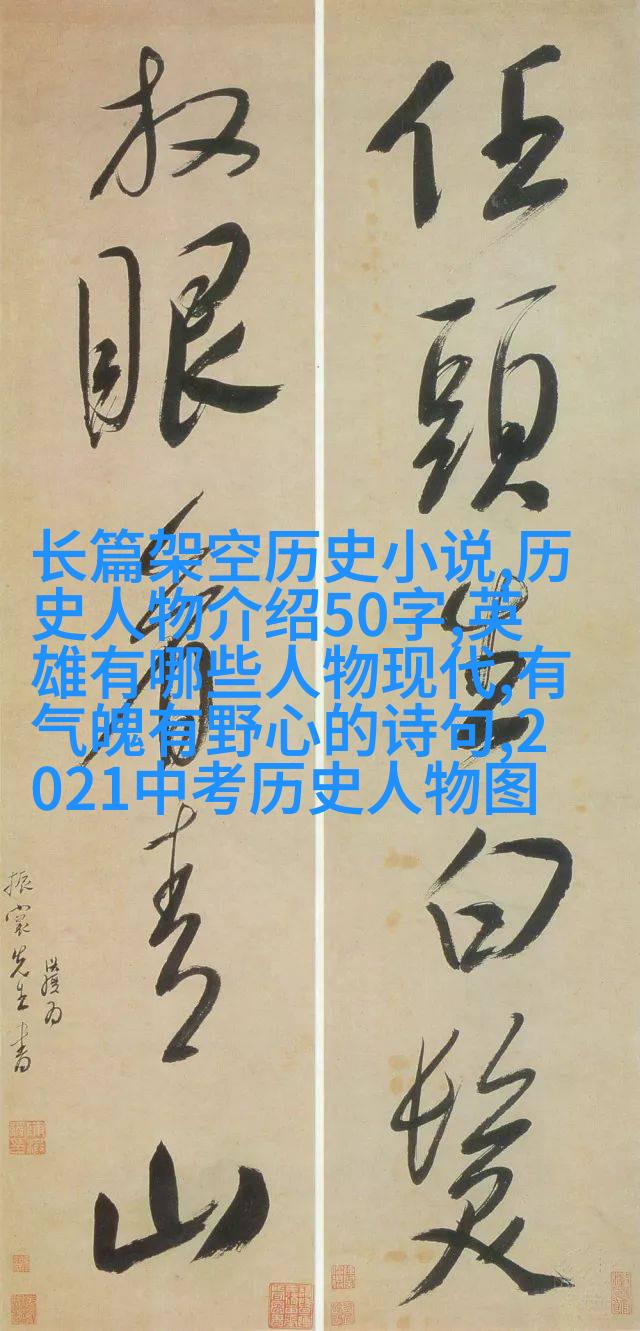 任頭生白髮
放眼看青山
先生書
长篇架空历史小说,历
史人物介绍50字,英
雄有哪些人物现代,有
气魄有野心的诗句,2
021中考历史人物图